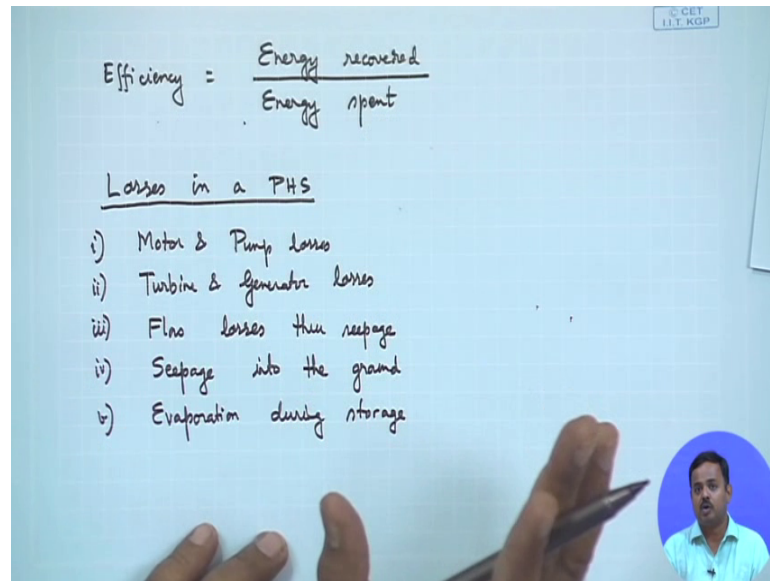 © CET
I.I.T. KGP
Efficiency = Energy recovered
Energy spent
Losses in a PHS
i) Motor & Pump losses
ii) Turbine & Generator losses
iii) Flow losses thru seepage
iv) Seepage into the ground
v) Evaporation during storage